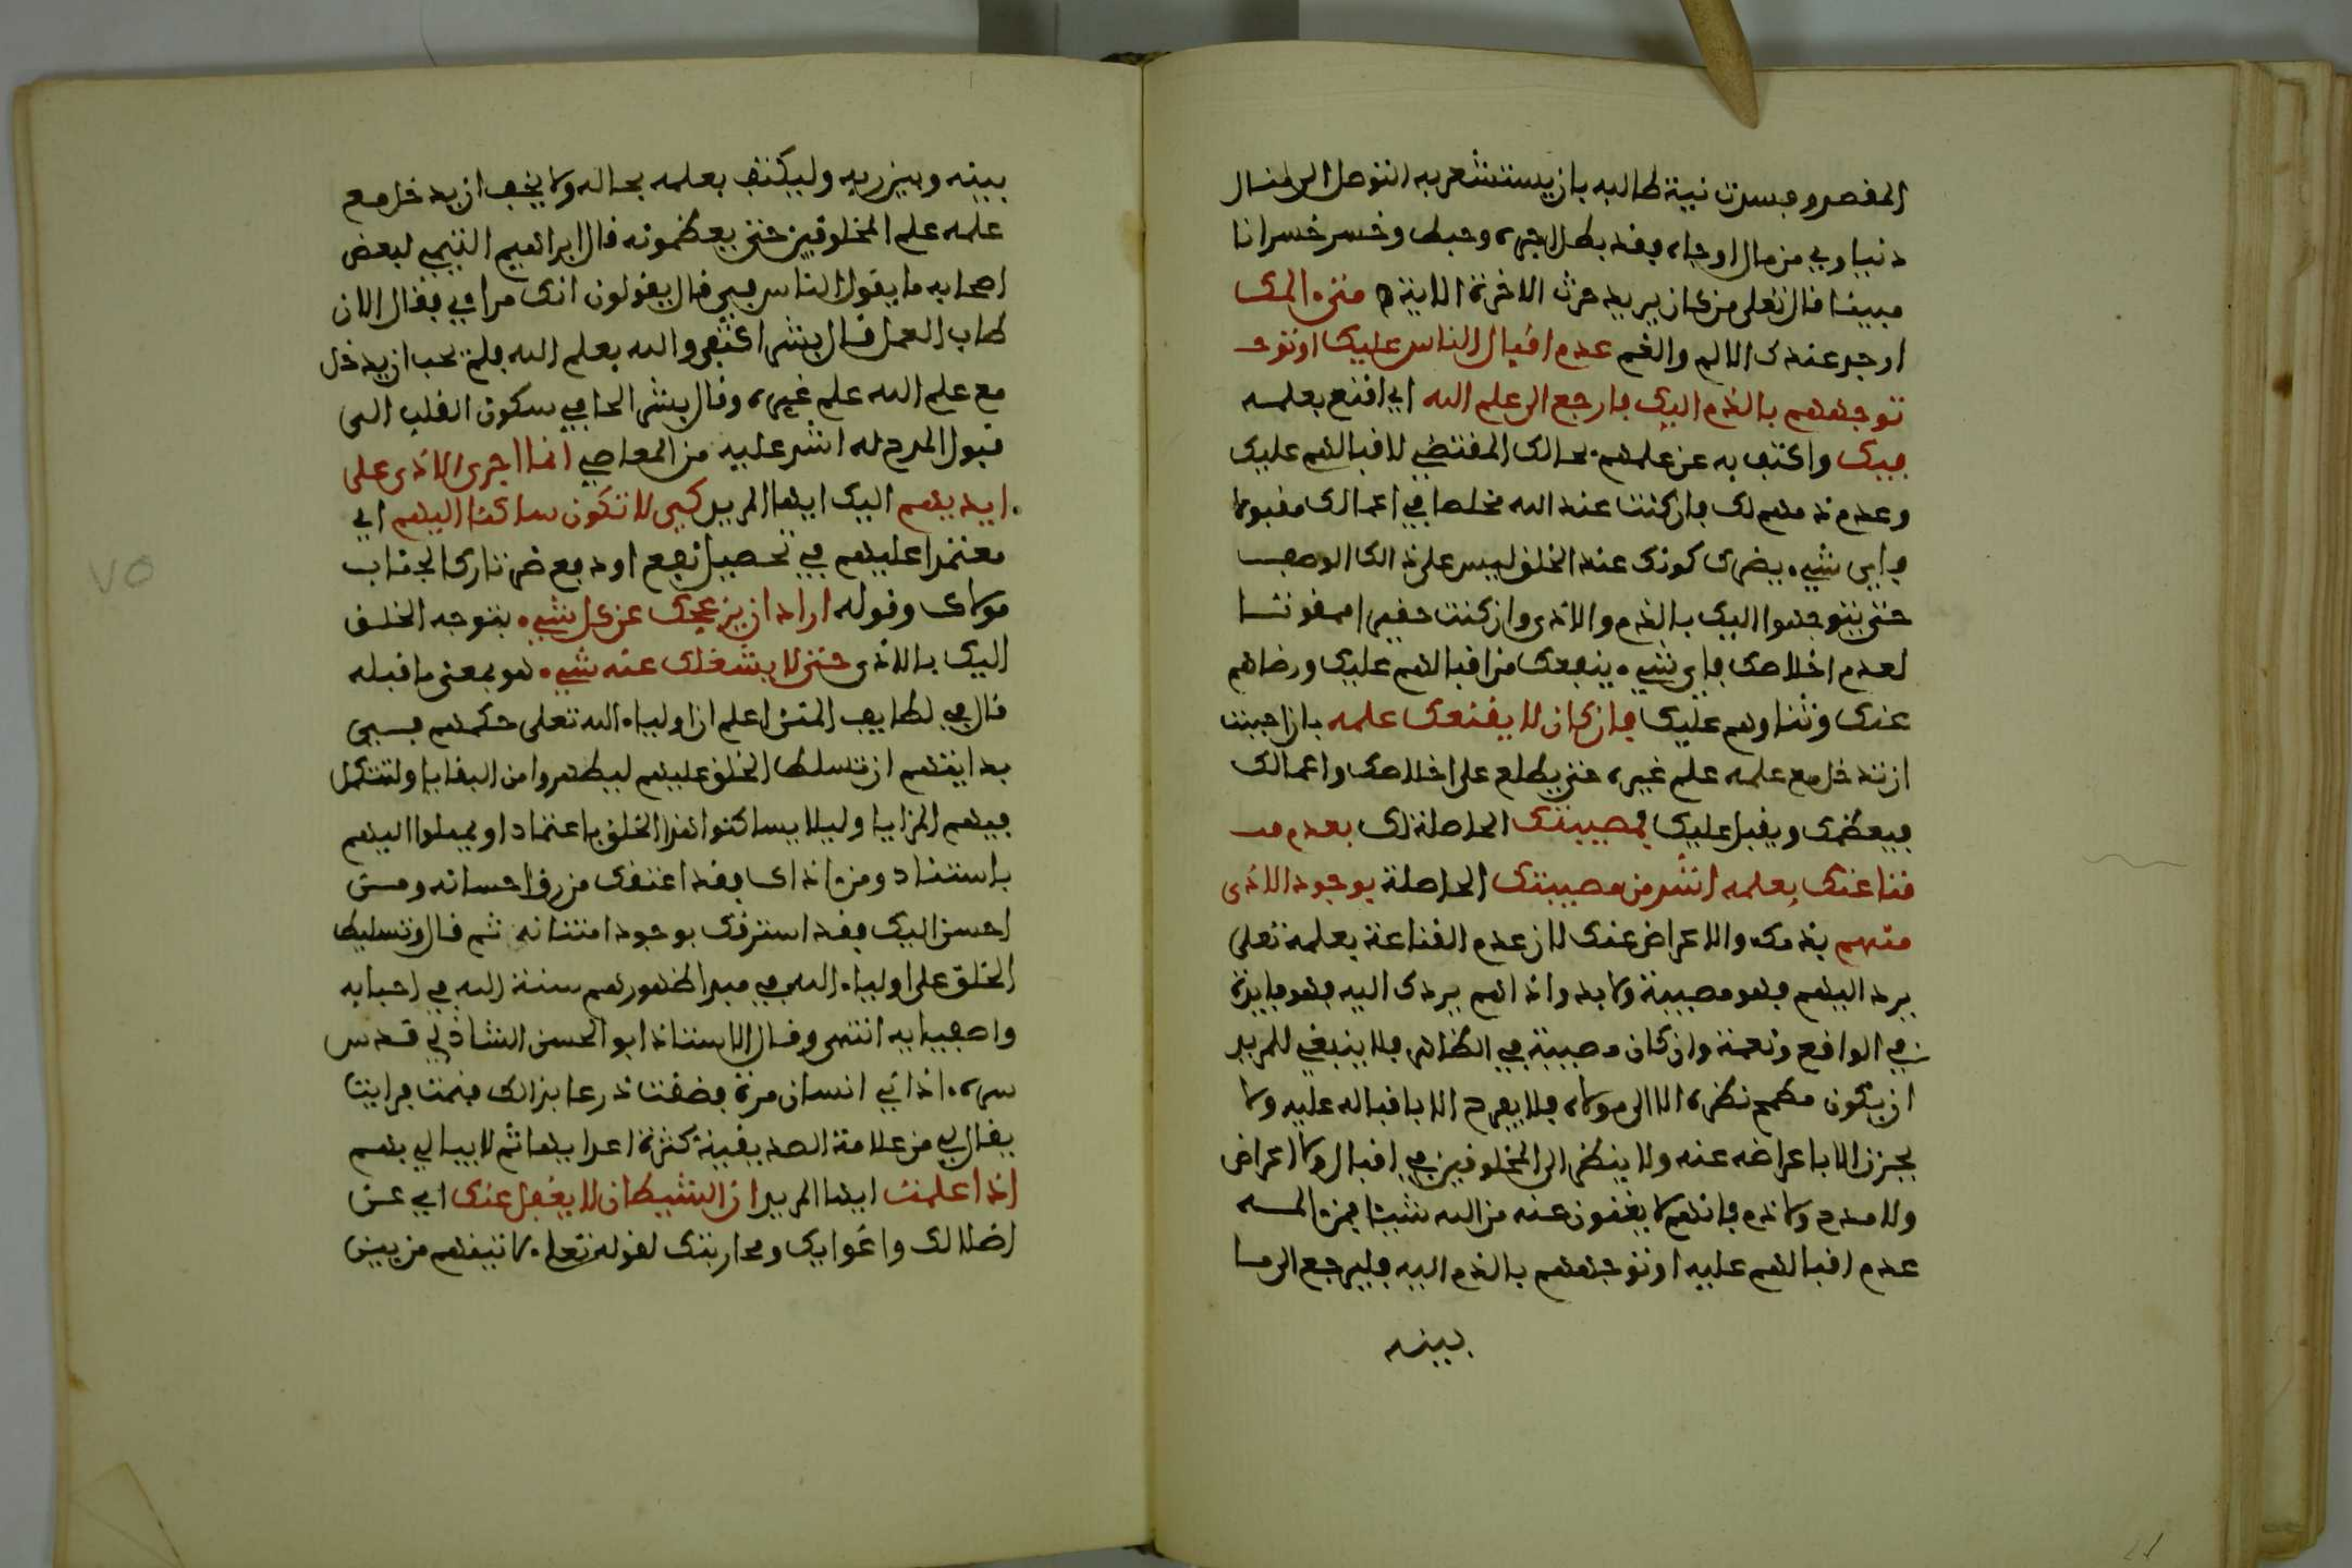 المقصر وفسدت نية طالبه بان يستشعر به التوصل الى منال
دنياوي من مال او جاه فقد بطل اجره وحبط وخسر خسرانا
مبينا قال تعلى من كان يريد حرث الاخرة الاية متى المك
اوجد عندك الالم والغم عدم اقبال الناس عليك او توج
توجههم بالذم اليك فارجع الى علم الله اي اقنع بعلمه
فيك واكتف به عن علمهم بحالك المقتضي لاقبالهم عليك
وعدم ذمهم لك فان كنت عند الله مخلصا في اعمالك مقبولا
فاي شيء يضرك كونك عند الخلق ليس على ذالك الوصف
حتى يتوجهوا اليك بالذم والاذى وان كنت حقيرا ممقوتا
لعدم اخلاصك فاي شيء ينفعك من اقبالهم عليك ورضاهم
عنك وثناوهم عليك فان كان لا يقنعك علمه بان احببت
ان تدخل مع علمه علم غيره حتى يطلع على اخلاصك واعمالك
فيعظمك ويقبل عليك فمصيبتك الحاصلة لك بعدم قـ
قناعتك بعلمه اشد من مصيبتك الحاصلة بوجود الاذى
منهم بذمك والاعراض عنك لان عدم القناعة بعلمه تعلى
يرد اليهم فهو مصيبة ولابد واذاهم يردك اليه فهو فايدة
في الواقع ونعمة وان كان مصيبة في الظاهر فلا ينبغي للمريد
ان يكون مطمح نظره الا الى مولاه فلا يفرح الا باقباله عليه ولا
يحزن الا باعراضه عنه ولا ينظر الى المخلوقين في اقبال ولا اعراض
ولا مدح ولا ذم فانهم لا يغنون عنه من الله شيئا فمن المه
عدم اقبالهم عليه او توجههم بالذم اليه فليرجع الى ما
بينه
بينه وبين ربه وليكتف بعلمه بحاله ولا يخف ان يدخل مع
علمه علم المخلوقين حتى يعظمونه قال ابراهيم التيمي لبعض
اصحابه ما يقول الناس في قال يقولون انك مراءي فقال الان
طاب العمل قال بشر اكتفى والله بعلم الله فلم يحب ان يدخل
مع علم الله علم غيره وقال بشر الحافي سكون القلب الى
قبول المدح له اشد عليه من المعاصي انما اجرى الاذى على
ايديهم اليك ايها المريد كي لا تكون ساكنا اليهم اي
معتمدا عليهم في تحصيل نفع او دفع ضر تاركا لجناب
مولاك وقوله اراد ان يزعجك عن كل شيء بتوجه الخلق
اليك بالاذى حتى لا يشغلك عنه شيء هو بمعنى ما قبله
قال في لطايف المنن اعلم ان اولياء الله تعلى حكمهم في
بدايتهم ان تسلط الخلق عليهم ليطهروا من البقايا ولتتكمل
فيهم المزايا وليلا يساكنوا هذا الخلق باعتماد او يميلوا اليهم
باستناد ومن اذاك فقد اعتقك من رق احسانه ومن
احسن اليك فقد استرقك بوجود امتنانه ثم قال وتسليط
الخلق على اولياء الله في مبدا ظهورهم سنة الله في احبابه
واصفيايه انتهى وقال الاستاذ ابو الحسن الشاذلي قدس
سره اذاني انسان مرة فضقت ذرعا بذالك فنمت فرايت
يقال لي من علامة الصديقية كثرة اعدايها ثم لا يبالي بهم
اذا علمت ايها المريد ان الشيطان لا يغفل عنك اي عن
اضلالك واغوايك ومحاربتك لقوله تعلى لاتينهم من بين